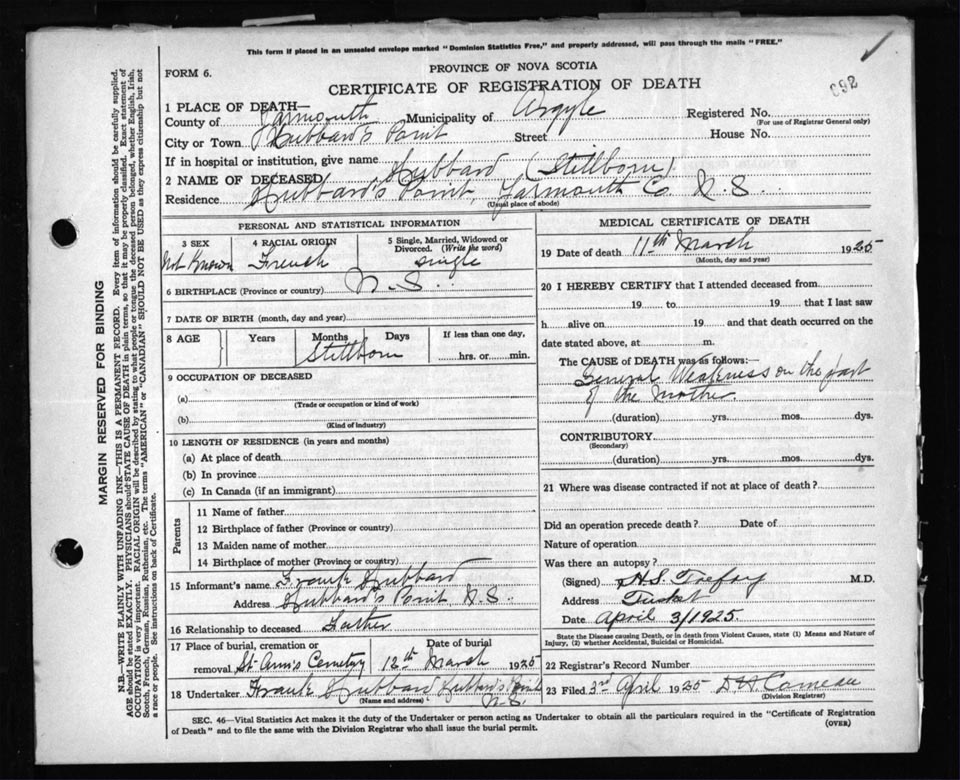 This form if placed in an unsealed envelope marked "Dominion Statistics Free," and properly addressed, will pass through the mails "FREE."
FORM 6.
PROVINCE OF NOVA SCOTIA
CERTIFICATE OF REGISTRATION OF DEATH
1 PLACE OF DEATH—
County of Yarmouth Municipality of Argyle Registered No.
(For use of Registrar General only)
City or Town Hubbard's Point Street House No.
If in hospital or institution, give name
2 NAME OF DECEASED Hubbard (Stillborn)
Residence Hubbard's Point, Yarmouth Co. N.S.
(Usual place of abode)
PERSONAL AND STATISTICAL INFORMATION
3 SEX Not Known
4 RACIAL ORIGIN French
5 Single, Married, Widowed or Divorced. (Write the word) single
6 BIRTHPLACE (Province or country) N.S.
7 DATE OF BIRTH (month, day and year)
8 AGE Years Months Days If less than one day,
Stillborn hrs. or min.
9 OCCUPATION OF DECEASED
(a)
(Trade or occupation or kind of work)
(b)
(Kind of industry)
10 LENGTH OF RESIDENCE (in years and months)
(a) At place of death
(b) In province
(c) In Canada (if an immigrant)
Parents
11 Name of father
12 Birthplace of father (Province or country)
13 Maiden name of mother
14 Birthplace of mother (Province or country)
15 Informant's name Frank Hubbard
Address Hubbard's Point, N.S.
16 Relationship to deceased Father
17 Place of burial, cremation or removal St. Ann's Cemetery Date of burial 12th March 1925
18 Undertaker Frank Hubbard Hubbard's Point N.S.
(Name and address)
MEDICAL CERTIFICATE OF DEATH
19 Date of death 11th March 1925
(Month, day and year)
20 I HEREBY CERTIFY that I attended deceased from
19 to 19 that I last saw
h alive on 19 and that death occurred on the
date stated above, at m.
The CAUSE of DEATH was as follows:—
General Weakness on the part
of the Mother
(duration) yrs. mos. dys.
CONTRIBUTORY
(Secondary)
(duration) yrs. mos. dys.
21 Where was disease contracted if not at place of death?
Did an operation precede death? Date of
Nature of operation
Was there an autopsy?
(Signed) H.S. Trefry M.D.
Address Tusket
Date April 3/1925.
State the Disease causing Death, or in death from Violent Causes, state (1) Means and Nature of
Injury, (2) whether Accidental, Suicidal or Homicidal.
22 Registrar's Record Number
23 Filed 3rd April 1925 D H Comeau
(Division Registrar)
SEC. 46—Vital Statistics Act makes it the duty of the Undertaker or person acting as Undertaker to obtain all the particulars required in the "Certificate of Registration
of Death" and to file the same with the Division Registrar who shall issue the burial permit.
(OVER)
MARGIN RESERVED FOR BINDING
N.B.—WRITE PLAINLY WITH UNFADING INK—THIS IS A PERMANENT RECORD. Every item of information should be carefully supplied.
AGE should be stated EXACTLY. PHYSICIANS should STATE CAUSE OF DEATH in plain terms, so that it may be properly classified. Exact statement of
OCCUPATION is very important. RACIAL ORIGIN will be described by stating to what people or tongue the deceased person belonged, whether English, Irish,
Scotch, French, German, Russian, Ruthenian, etc. The terms "AMERICAN" or "CANADIAN" SHOULD NOT BE USED as they express citizenship but not
a race or people. See instructions on back of Certificate.